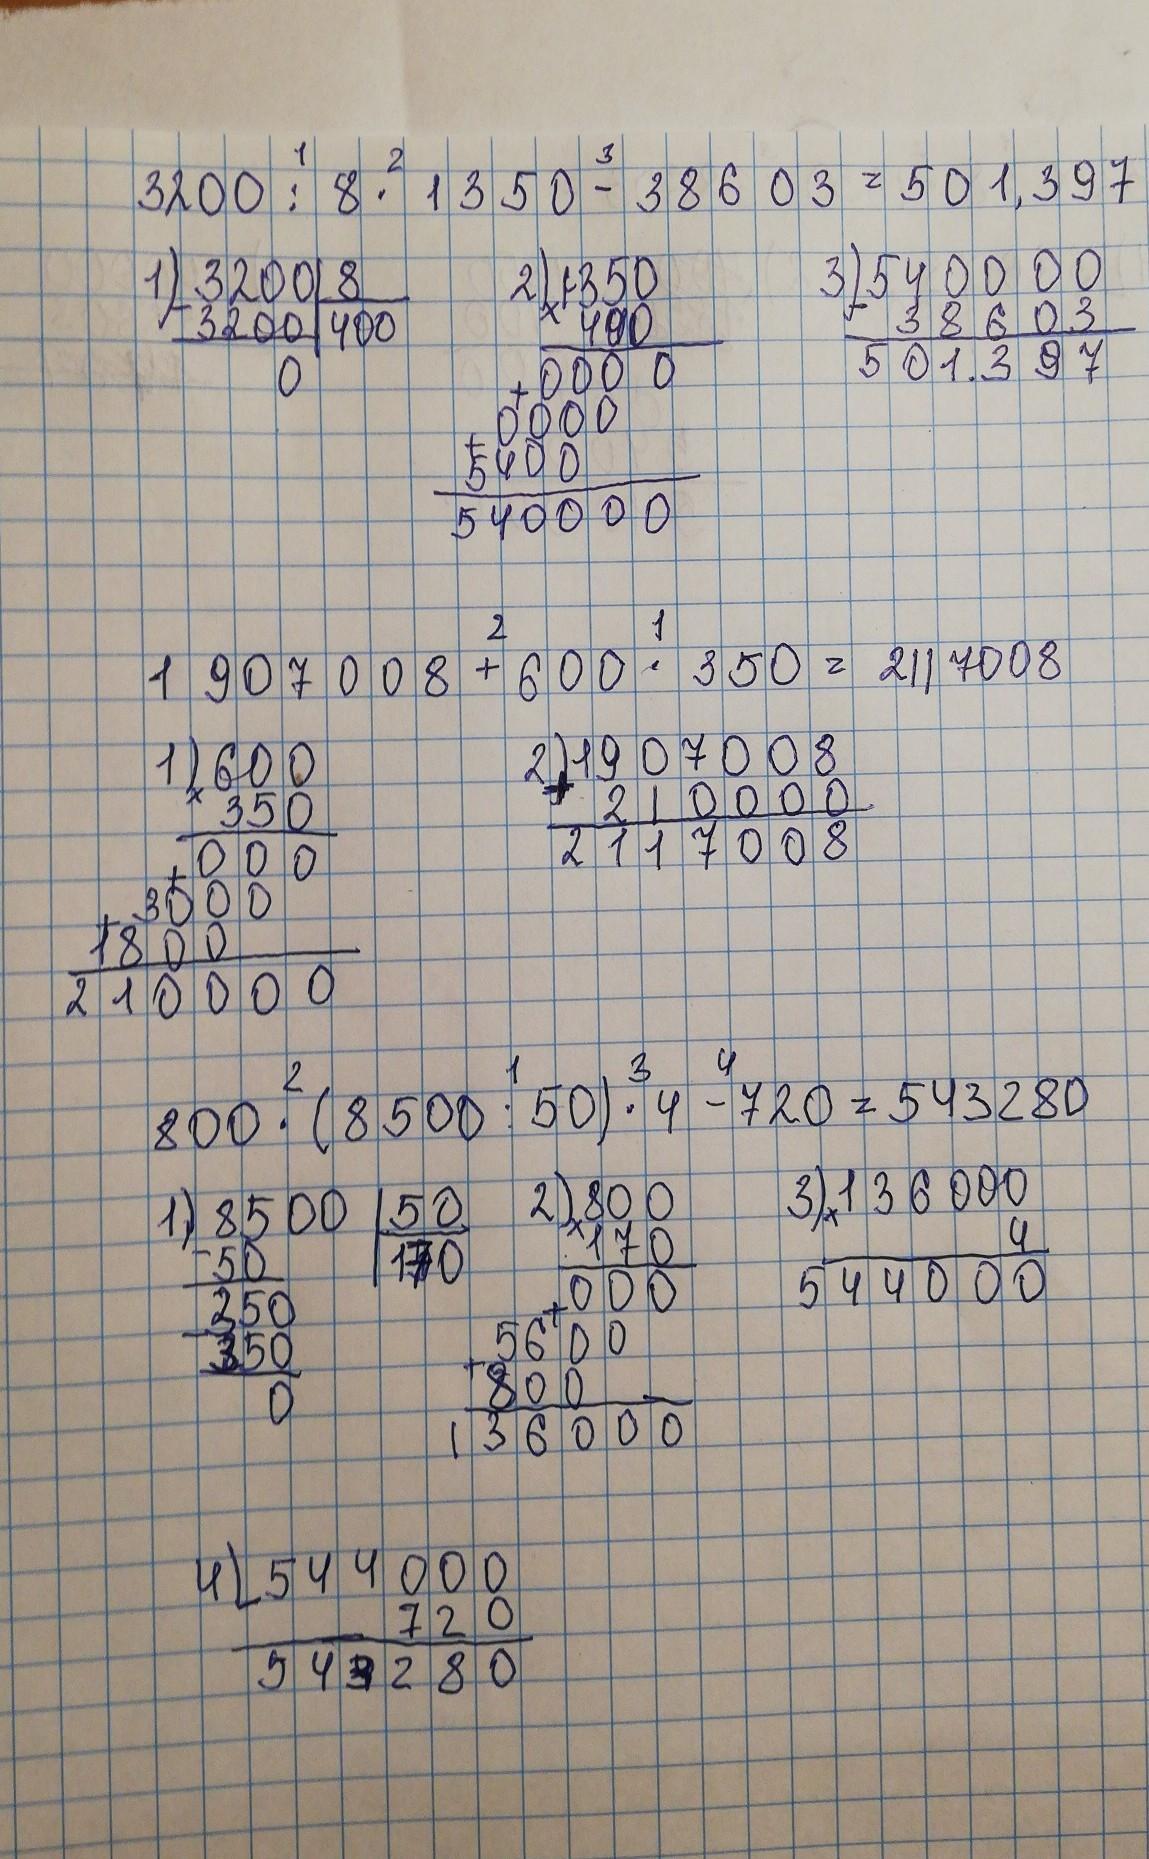 1 2 3
3200 : 8 · 1350 - 38603 = 501,397
1) 3200 | 8
- 3200 | 400
0
2) 1350
× 400
0000
+ 0000
+ 5400
540000
3) 540000
- 38603
501.397
2 1
1907008 + 600 · 350 = 2117008
1) 600
× 350
000
+ 3000
+ 1800
210000
2) 1907008
+ 210000
2117008
2 1 3 4
800 · (8500 : 50) · 4 - 720 = 543280
1) 8500 | 50
- 50 | 170
350
- 350
0
2) 800
× 170
000
+ 5600
+ 800
136000
3) 136000
× 4
544000
4) 544000
- 720
543280